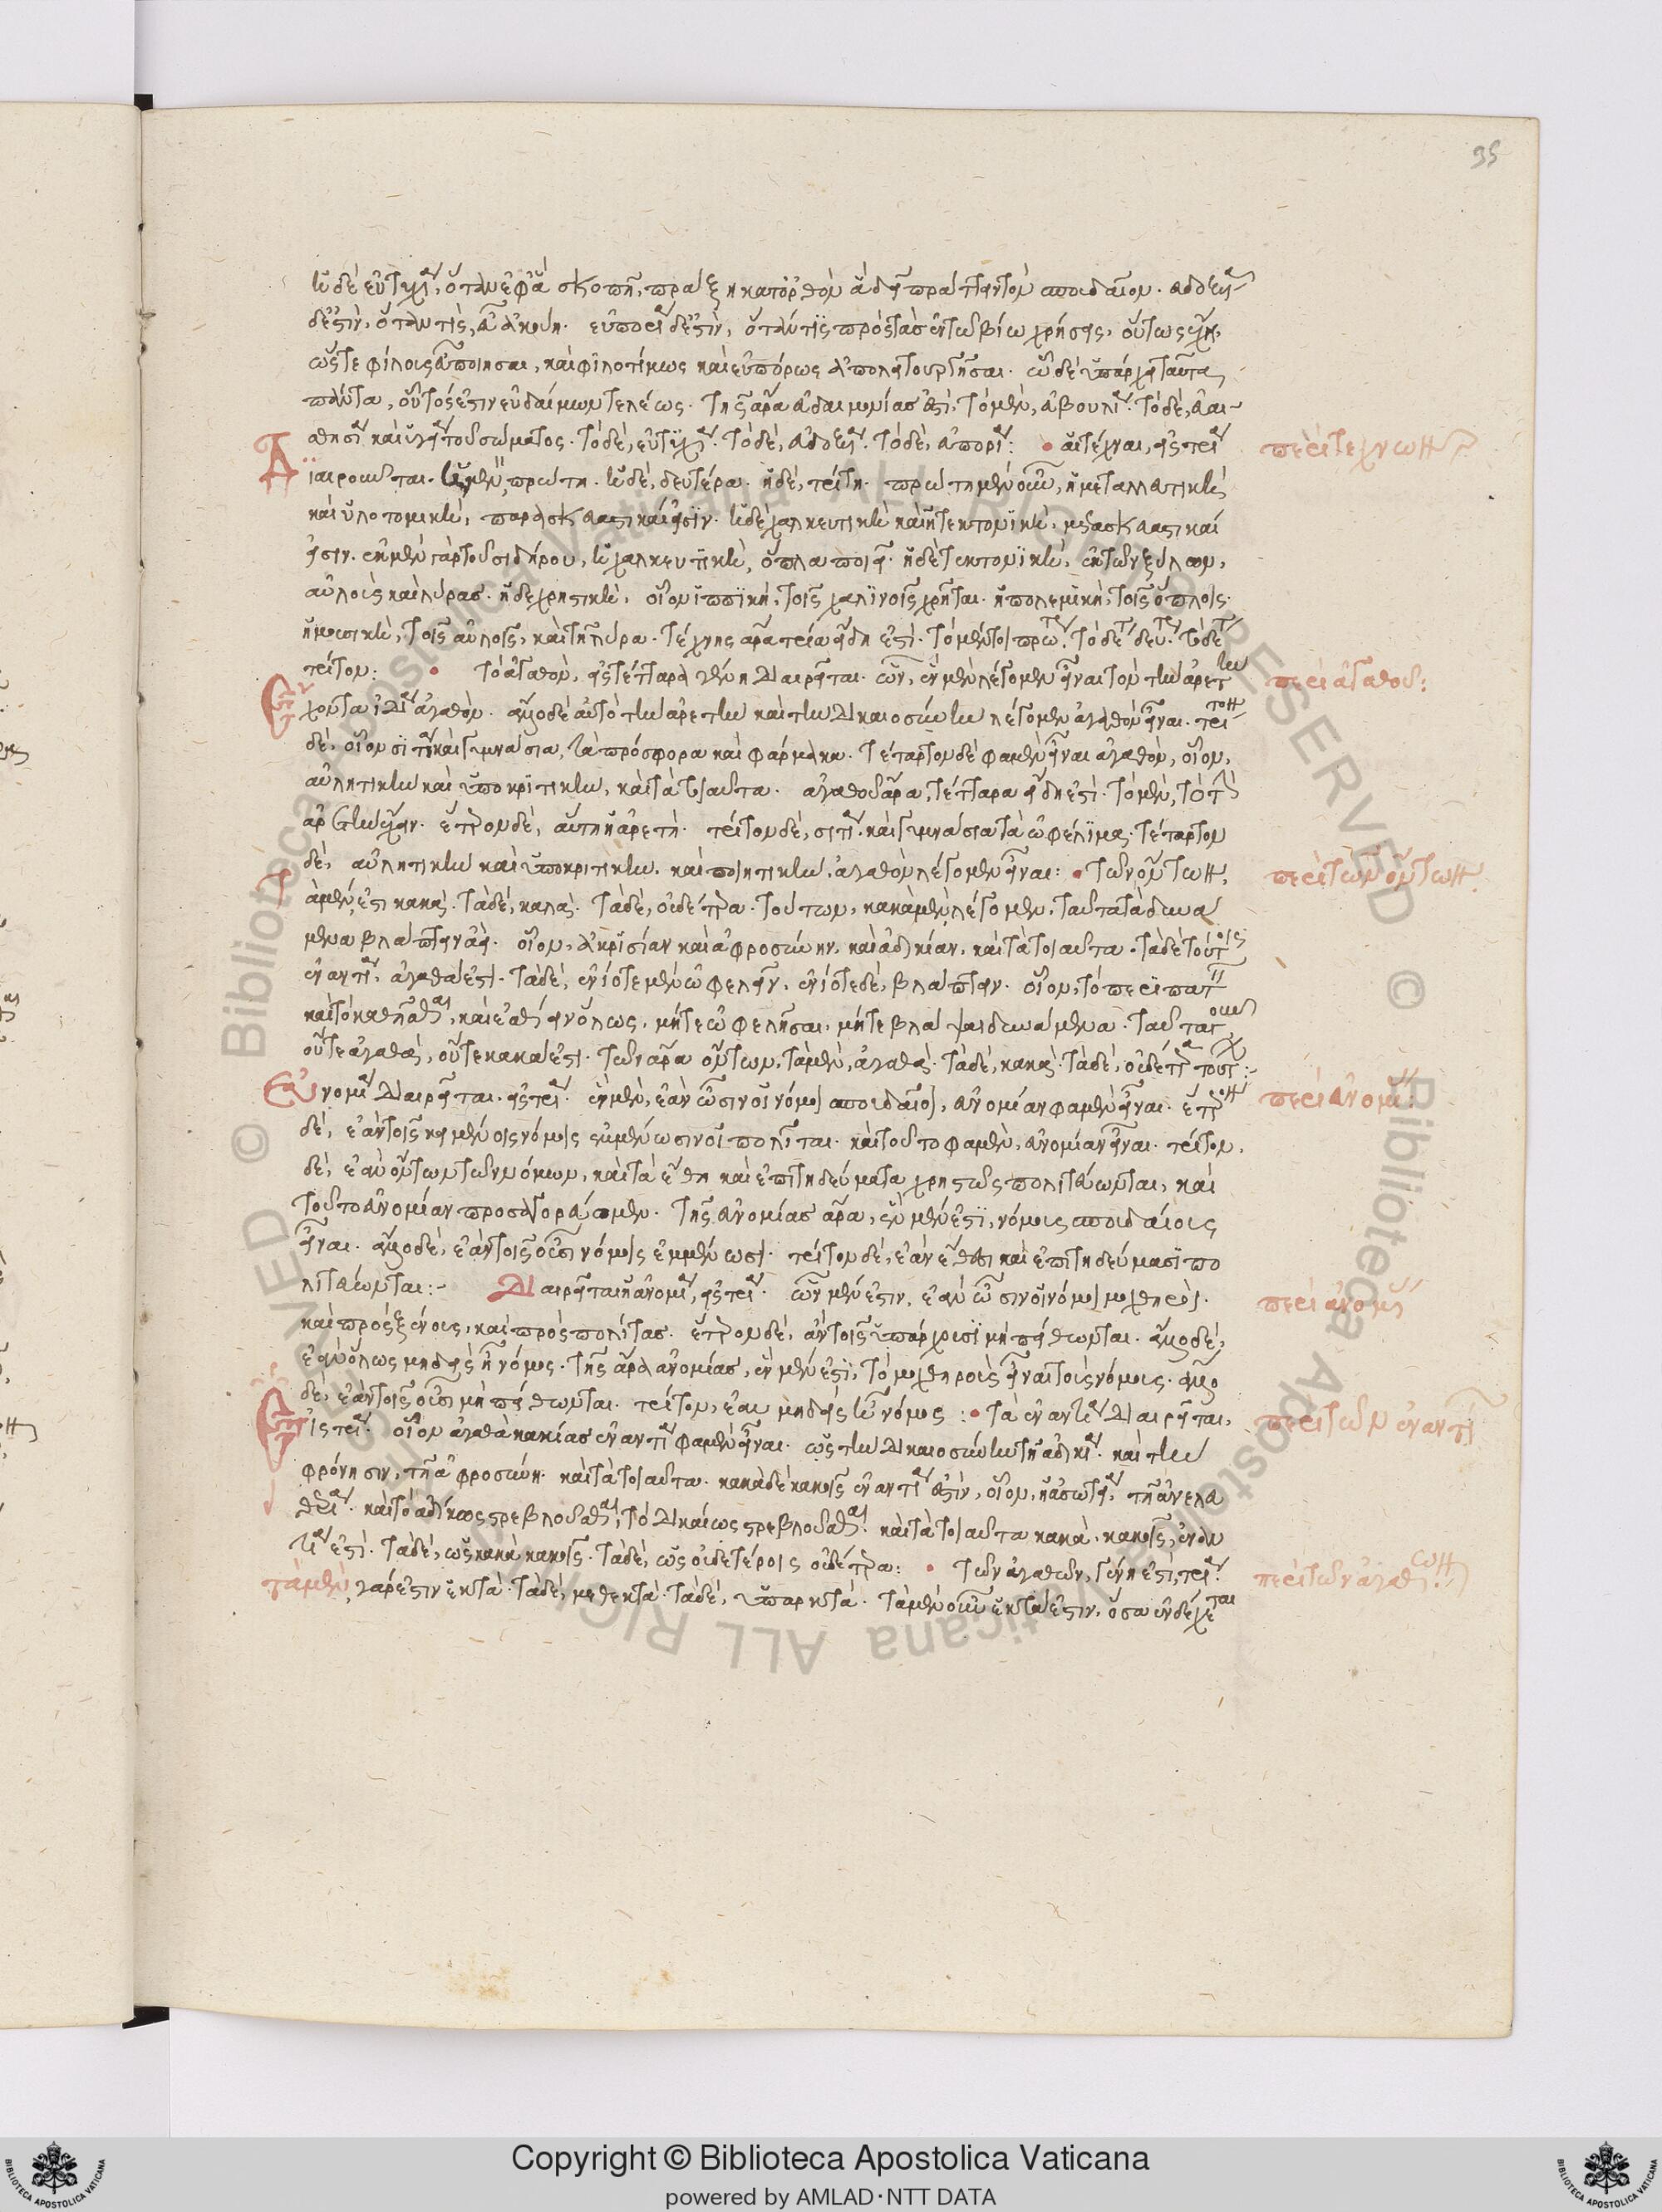 95
ἡ δὲ εὐτυχία, ὅταν ἐφ' ἃ σκοπῇ, πράξῃ κατορθῶν ἃ δεῖ πράττειν τὸν σπουδαῖον. εὐδοξία
δέ ἐστιν, ὅταν τις εὖ ἀκούῃ. εὐπορία δέ ἐστιν, ὅταν τις πρὸς τὰς ἐν τῷ βίῳ χρήσεις, οὕτως ἔχῃ,
ὥστε φίλους εὖ ποιῆσαι, καὶ φιλοτίμως καὶ εὐπόρως ἀπολειτουργῆσαι. ᾧ δὲ ὑπάρχει ταῦτα
πάντα, οὗτός ἐστιν εὐδαίμων τελέως. τῆς ἄρα εὐδαιμονίας ἐστὶ, τὸ μὲν, εὐβουλία. τὸ δὲ, εὐαι-
σθησία καὶ ὑγεία τοῦ σώματος. τὸ δὲ, εὐτυχία. τὸ δὲ, εὐδοξία. τὸ δὲ, εὐπορία: αἱ τέχναι, εἰς τρία
περὶ τεχνῶν
Διαιροῦνται. ἡ μὲν, πρώτη. ἡ δὲ, δευτέρα. ἡ δὲ, τρίτη. πρώτη μὲν οὖν, ἡ μεταλλευτικὴ
καὶ ὑλοτομική, παρασκευαστικαὶ εἰσίν. ἡ δὲ χαλκευτικὴ καὶ ἡ τεκτονικὴ, μετασκευαστικαί
εἰσιν. ἐκ μὲν γὰρ τοῦ σιδήρου, ἡ χαλκευτικὴ, ὅπλα ποιεῖ. ἡ δὲ τεκτονικὴ, ἐκ τῶν ξύλων,
αὐλοὺς καὶ λύρας. ἡ δὲ χρηστικὴ, οἷον ἱππική, τοῖς χαλινοῖς χρῆται. ἡ πολεμική, τοῖς ὅπλοις.
ἡ μουσικὴ, τοῖς αὐλοῖς, καὶ τῇ λύρᾳ. τέχνης ἄρα τρία εἴδη ἐστί. τὸ μέν τοι πρῶτον. τὸ δὲ δεύτερον. τὸ δὲ
τρίτον: τὸ ἀγαθὸν, εἰς τέτταρα γένη διαιρεῖται. ὧν, ἓν μὲν λέγομεν εἶναι τὸν τὴν ἀρετὴν
περὶ ἀγαθοῦ:
ἔχοντα ἰδίᾳ ἀγαθόν. ἕτερον δὲ αὐτὸ τὴν ἀρετὴν καὶ τὴν δικαιοσύνην λέγομεν ἀγαθὸν εἶναι. τρίτον
δὲ, οἷον σιτία καὶ γυμνάσια, τὰ πρόσφορα καὶ φάρμακα. τέταρτον δὲ φαμὲν εἶναι ἀγαθὸν, οἷον,
αὐλητικὴν καὶ ὑποκριτικὴν, καὶ τὰ τοιαῦτα. ἀγαθοῦ ἄρα, τέτταρα εἴδη ἐστί. τὸ μὲν, τὸ τὴν
ἀρετὴν ἔχειν. ἕτερον δὲ, αὐτὴ ἡ ἀρετή. τρίτον δὲ, σιτία καὶ γυμνάσια τὰ ὠφέλιμα. τέταρτον
δὲ, αὐλητικὴν καὶ ὑποκριτικὴν, καὶ ποιητικὴν, ἀγαθὸν λέγομεν εἶναι: τῶν ὄντων,
περὶ τῶν ὄντων
Τὰ μέν ἐστι κακά. τὰ δὲ, καλά. τὰ δὲ, οὐδέτερα. τούτων, κακὰ μὲν λέγομεν, ταῦτα τὰ δυνά
μενα βλάπτειν ἀεί. οἷον, ἀκρισίαν καὶ ἀφροσύνην, καὶ ἀδικίαν, καὶ τὰ τοιαῦτα. τὰ δὲ τούτοις
ἐναντία, ἀγαθά ἐστι. τὰ δὲ, ἐνίοτε μὲν ὠφελεῖν, ἐνίοτε δὲ, βλάπτειν. οἷον, τὸ περιπατεῖν
καὶ τὸ καθῆσθαι, καὶ ἐσθίειν ὅλως, μήτε ὠφελῆσαι, μήτε βλάψαι δυνάμενα. ταῦτα γοῦν
οὔτε ἀγαθά, οὔτε κακά ἐστι. τῶν ἄρα ὄντων, τὰ μὲν, ἀγαθά. τὰ δὲ, κακά. τὰ δὲ, οὐδέτερα τούτων:-
Εὐνομία διαιρεῖται εἰς τρία. ἓν μὲν, ἐὰν ὦσιν οἱ νόμοι σπουδαῖοι, εὐνομίαν φαμὲν εἶναι. ἕτερον
περὶ εὐνομίας:
δὲ, ἐὰν τοῖς κειμένοις νόμοις ἐμμένωσιν οἱ πολῖται. καὶ τοῦτο φαμὲν, εὐνομίαν εἶναι. τρίτον
δὲ, ἐὰν ὄντων τῶν νόμων, κατὰ ἔθη καὶ ἐπιτηδεύματα χρηστῶς πολιτεύωνται, καὶ
τοῦτο εὐνομίαν προσαγορεύομεν. τῆς εὐνομίας ἄρα, ἓν μέν ἐστι, νόμους σπουδαίους
εἶναι. ἕτερον δὲ, ἐὰν τοῖς οὖσι νόμοις ἐμμένωσι. τρίτον δὲ, ἐὰν ἔθεσι καὶ ἐπιτηδεύμασι πο
λιτεύωνται:- Διαιρεῖται ἡ ἀνομία, εἰς τρία. ὧν μέν ἐστιν, ἐὰν ὦσιν οἱ νόμοι μοχθηροὶ.
περὶ ἀνομίας
καὶ πρὸς ξένους, καὶ πρὸς πολίτας. ἕτερον δὲ, ἂν τοῖς ὑπάρχουσι μὴ πείθωνται. ἕτερον δὲ,
ἐὰν ὅλως μηδεὶς ᾖ νόμος. τῆς ἄρα ἀνομίας, ἓν μέν ἐστι, τὸ μοχθηροὺς εἶναι τοὺς νόμους. ἕτερον
δὲ, ἐὰν τοῖς οὖσι μὴ πείθωνται. τρίτον, ἐὰν μηδεὶς ᾖ νόμος: τὰ ἐναντία διαιρεῖται,
περὶ τῶν ἐναντίων
Εἰς τρία. οἷον ἀγαθὰ κακίας ἐναντία φαμὲν εἶναι. ὡς τὴν δικαιοσύνην τῇ ἀδικίᾳ. καὶ τὴν
φρόνησιν, τῇ ἀφροσύνῃ. καὶ τὰ τοιαῦτα. κακὰ δὲ κακοῖς ἐναντία ἐστὶν, οἷον, ἡ ἀσωτία, τῇ ἀνελευ
θερίᾳ. καὶ τὸ ἀδίκως στρεβλοῦσθαι, τὸ δικαίως στρεβλοῦσθαι. καὶ τὰ τοιαῦτα κακὰ, κακοῖς, ἐναν
τία ἐστί. τὰ δὲ, ὡς κακὰ κακοῖς. τὰ δὲ, ὡς οὐδετέροις οὐδέτερα: τῶν ἀγαθῶν, γένη ἐστὶ, τρία.
περὶ τῶν ἀγαθῶν
τὰ μὲν, γάρ ἐστιν ἑκτά. τὰ δὲ, μεθεκτά. τὰ δὲ, ὑπαρκτά. τὰ μὲν οὖν ἑκτά ἐστιν, ὅσα ἐνδέχεται
© Biblioteca Apostolica Vaticana ALL RIGHTS RESERVED
Copyright © Biblioteca Apostolica Vaticana
powered by AMLAD·NTT DATA
BIBLIOTECA APOSTOLICA VATICANA
BIBLIOTECA APOSTOLICA VATICANA